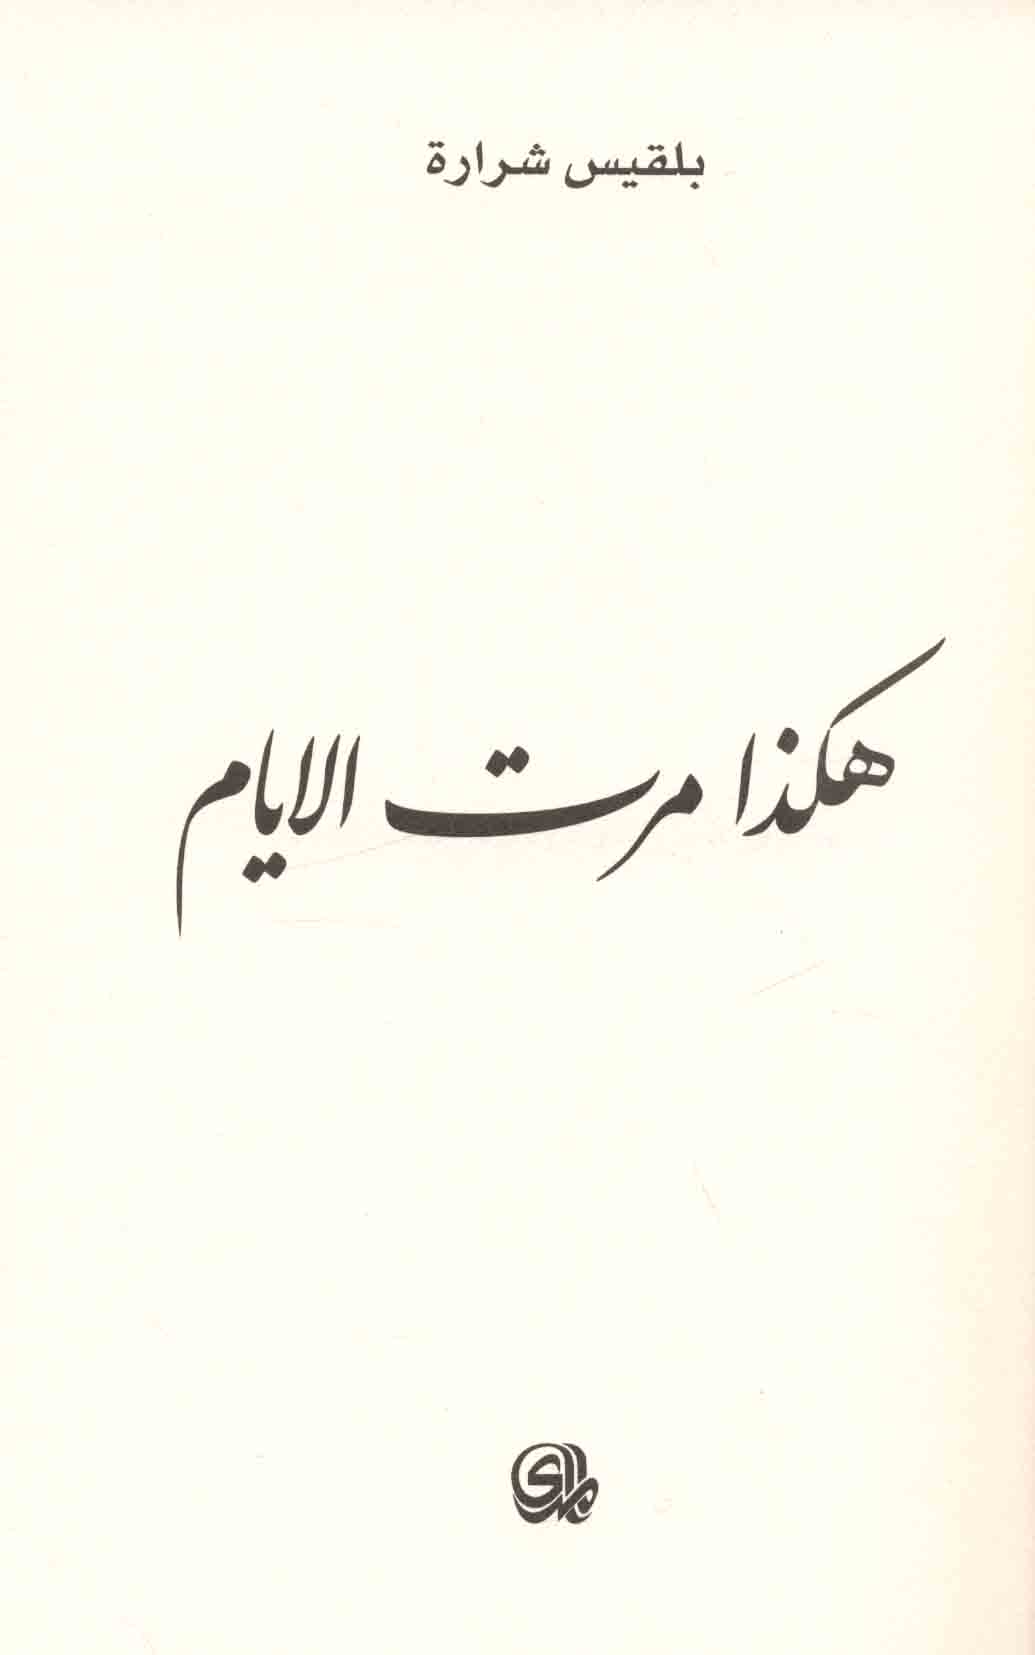 بلقيس شرارة
هكذا مرت الايام
المدى